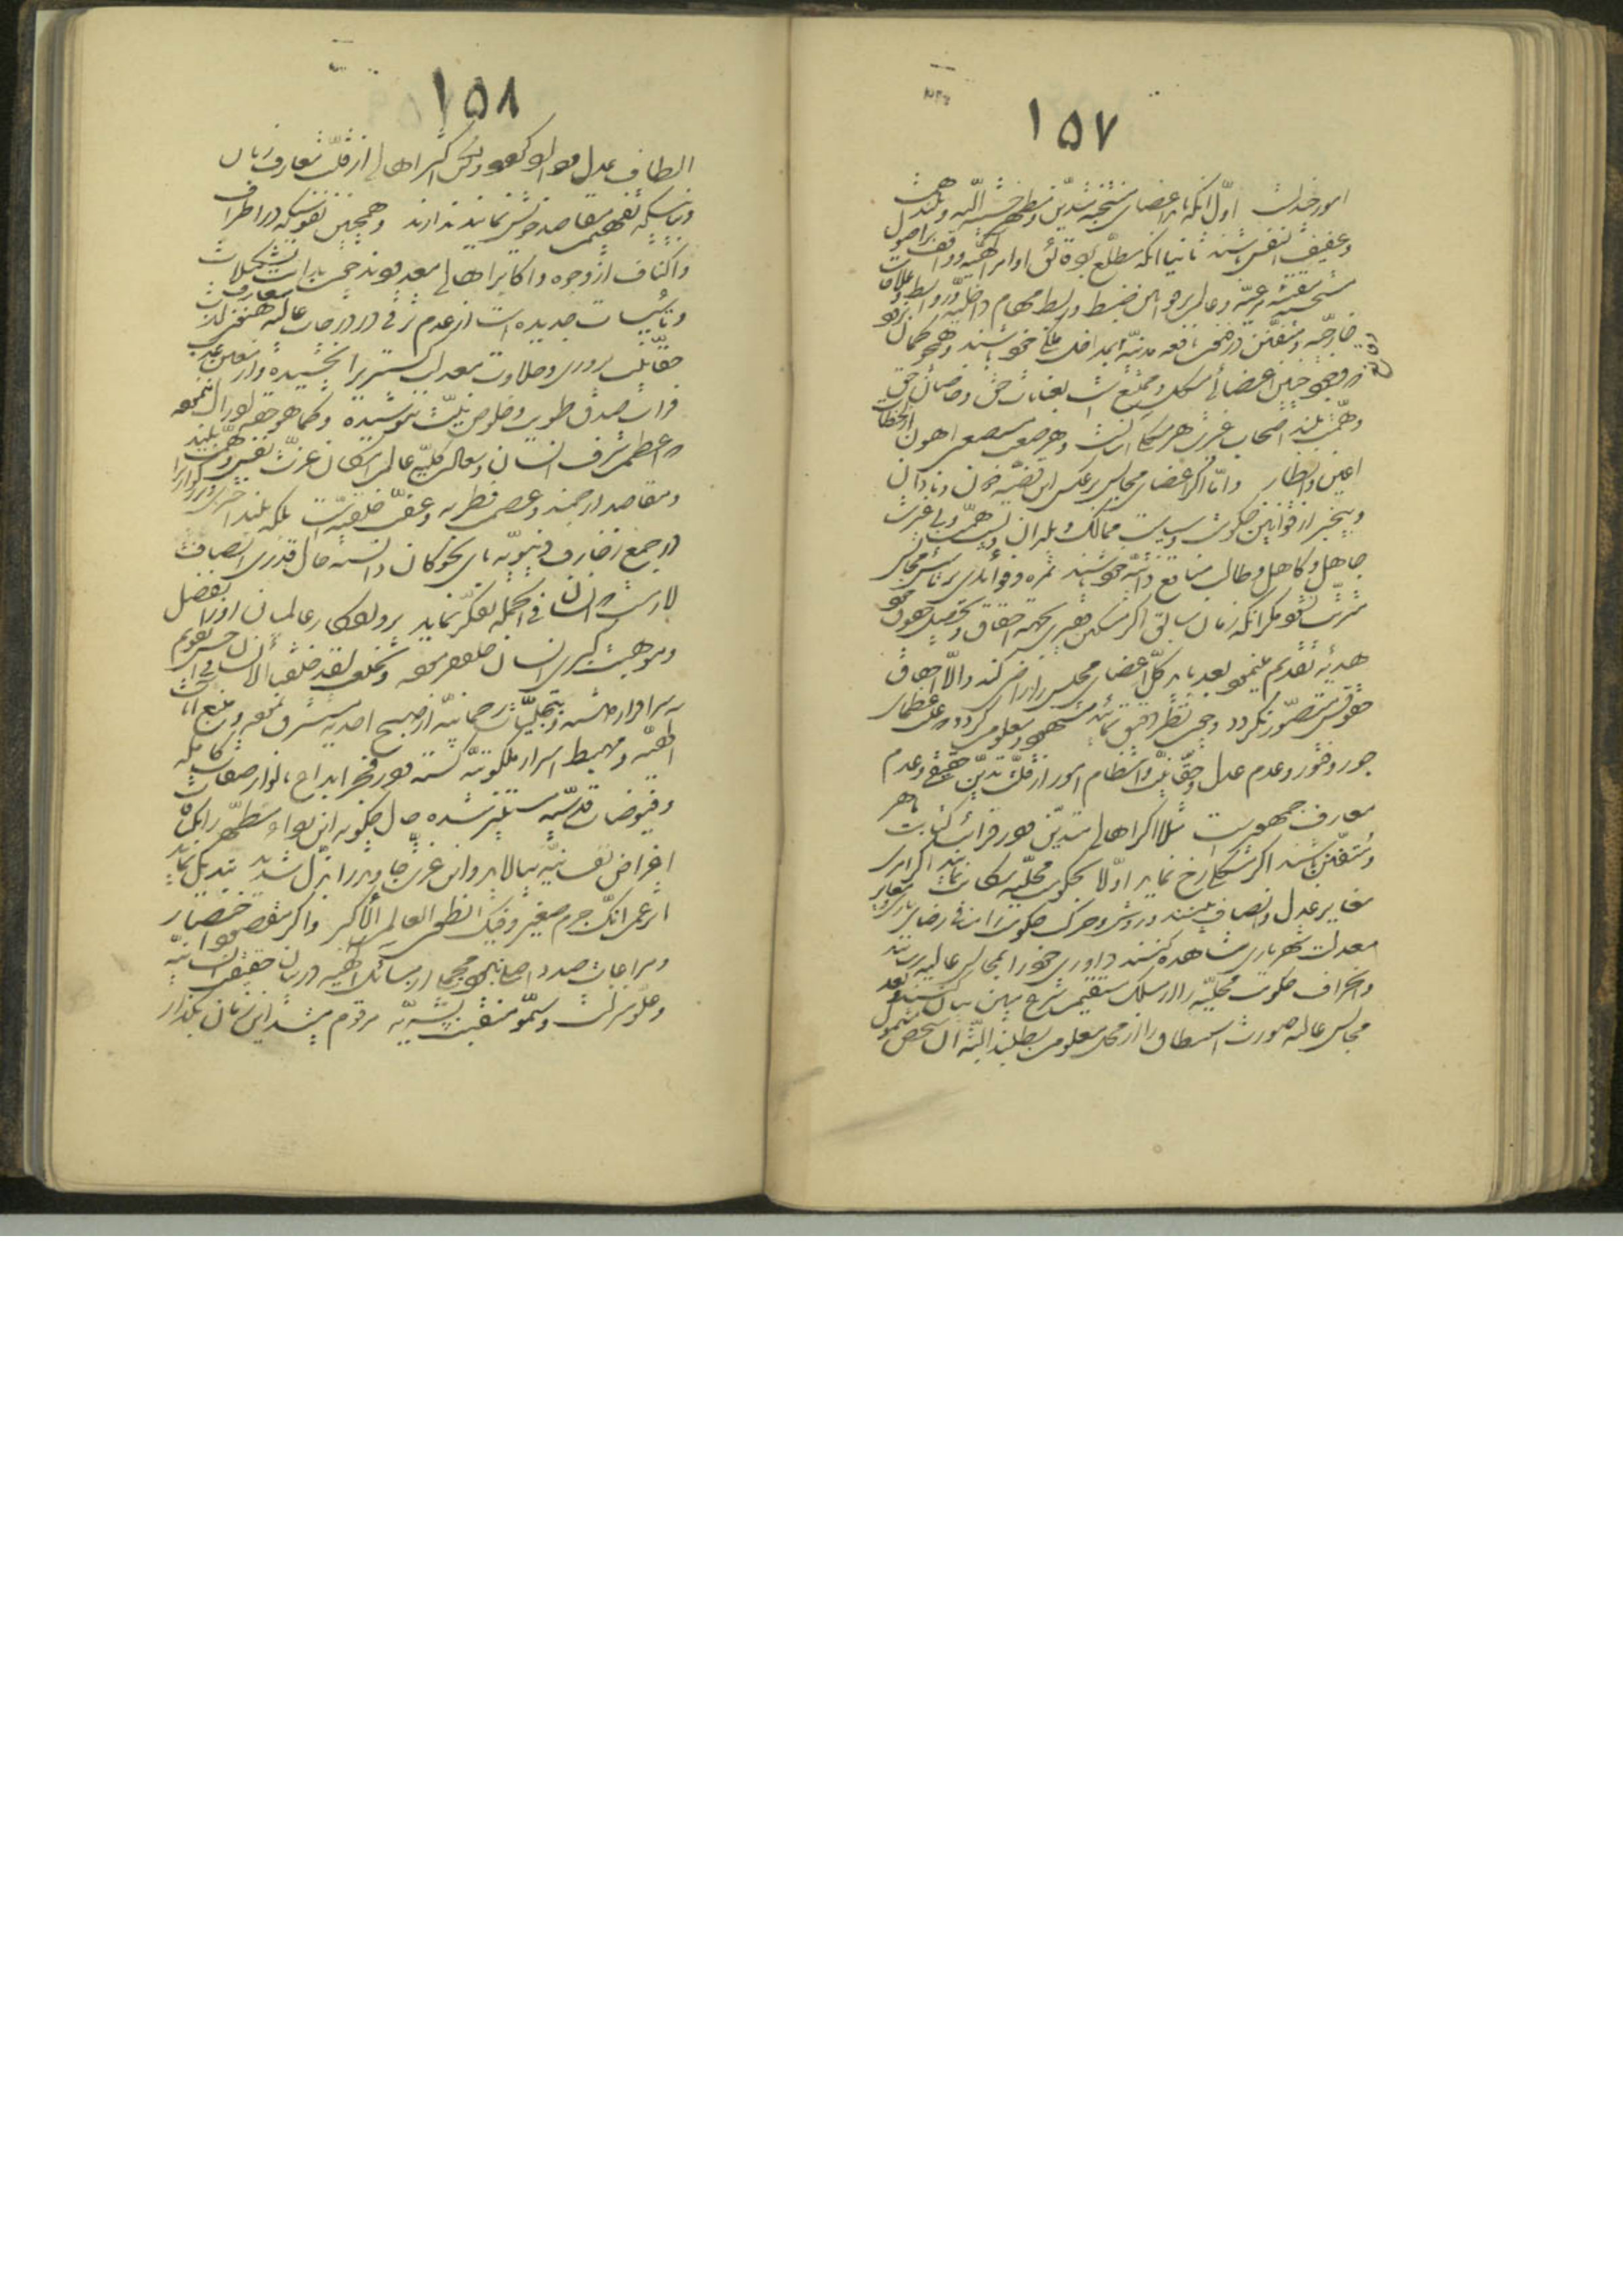 ۱۵۷
امور چند است اوّل آنکه باید اعضای منتخبه متدیّن و مظهر خشیة اللّه و بلند همّت
و عفیف النفس باشند ثانیا آنکه مطلع بر دقائق اوامر الهیّه و واقف بر اصول
مستحسنه متقنه مرعیّه و عالم بر قوانین ضبط و ربط مهام داخلیّه و روابط و علاقات
خارجیّه و متفنّن در فنون نافعه مدنیّه و بمداخل ملکی خود باشند و همچو گمان نرود
که وجود چنین اعضائی مشکل و ممتنع است بعنایات حق و خاصان حق
و همّت بلند اصحاب غیرت هر مشکلی آسانست و هر صعب مستصعبی اهون از لحظات
اعین و انظار و امّا اگر اعضای مجالس بر عکس این قضیّه دون و نادان
و بیخبر از قوانین حکومت و سیاست ممالک و بلدان و پست همّت و بی غیرت
جاهل و کاهل و طالب منافع ذاتیّه خود باشند ثمره و فوائدی بر تأسیس مجالس
مترتّب نشود مگر آنکه زمان سابق اگر مسکین فقیری بجهت احقاق و تحصیل حقوق خود
هدیّه تقدیم مینمود بعد باید کلّ اعضای مجلس را راضی کند و الّا احقاق
حقوقش متصوّر نگردد و چون نظر دقیق نمائید مشهود و معلوم گردد که علّت عظمای
جور و فتور و عدم عدل و حقّانیّت و انتظام امور از قلّت تدیّن حقیقی و عدم
معارف جمهور است مثلا اگر اهالی متدیّن و در قرائت و کتابت ماهر
و متفنّن باشند اگر مشکلی رخ نماید اوّلا بحکومت محلّیّه شکایت نمایند اگر امری
مغایر عدل و انصاف بینند و روش و حرکت حکومت را منافی رضای باری و مغایر
معدلت شهریاری مشاهده کنند داوری خود را بمجالس عالیه رسانند
و انحراف حکومت محلیّه را از مسلک مستقیم شرع مبین بیان کنند و بعد
مجالس عالیه صورت استنطاق را از محل معلوم بطلبند البتّه آن شخص مشمول
۱۵۸
الطاف عدل و داد گردد ولکن اکثر اهالی از قلّت معارف زبان
و بیانی که تفهیم مقاصد خویش نمایند ندارند و همچنین نفوسیکه در اطراف
و اکناف از وجوه و اکابر اهالی معدودند چون بدایت تشکیلات
و تأسیسات جدیده است از عدم ترقّی در درجات عالیه معارف هنوز لذّت
حقّانیّت پروری و حلاوت معدلت گستری را نچشیده و از معین عذب
فرات صدق طویّت و خلوص نیّت ننوشیده و کما هو حقّه ادراک ننموده
که اعظم شرف انسان و سعادت کلیّه عالم امکان عزّت نفس و همّت بلند
و مقاصد ارجمند و عصمت فطریه و عفّت خلقیّه است بلکه بلند اختری و بزرگواری را
در جمع زخارف دنیویّه بای نحو کان دانسته حال قدری انصاف
لازمست انسان فی الجمله تفکّر نماید پروردگار عالمیان او را بفضل
و موهبت کبری انسان خلق فرمود و بخلعت لقد خلقنا الانسان فی احسن تقویم
سرافراز داشته و بتجلیّات رحمانیّه از صبح احدیه مشرّف نموده و منبع آیات
الهیّه و مهبط اسرار ملکوتیّه گشته و در فجر ابداع بانوار صفات کامله
و فیوضات قدسیّه مستنیر شده حال چگونه این رداء مطهّر را بکثافت
اغراض نفسانیّه بیالاید و این عزّت جاوید را بذلّت شدید تبدیل نماید
اتزعم انّک جرم صغیر و فیک انطوی العالم الأکبر و اگر مقصود اختصار
و مراعات صدد اصلی نبود مجملی از مسائل الهیّه در بیان حقیقت انسانیّه
و علوّ منزلت و سموّ منقبت بشریّه مرقوم میشد این زمان بگذار